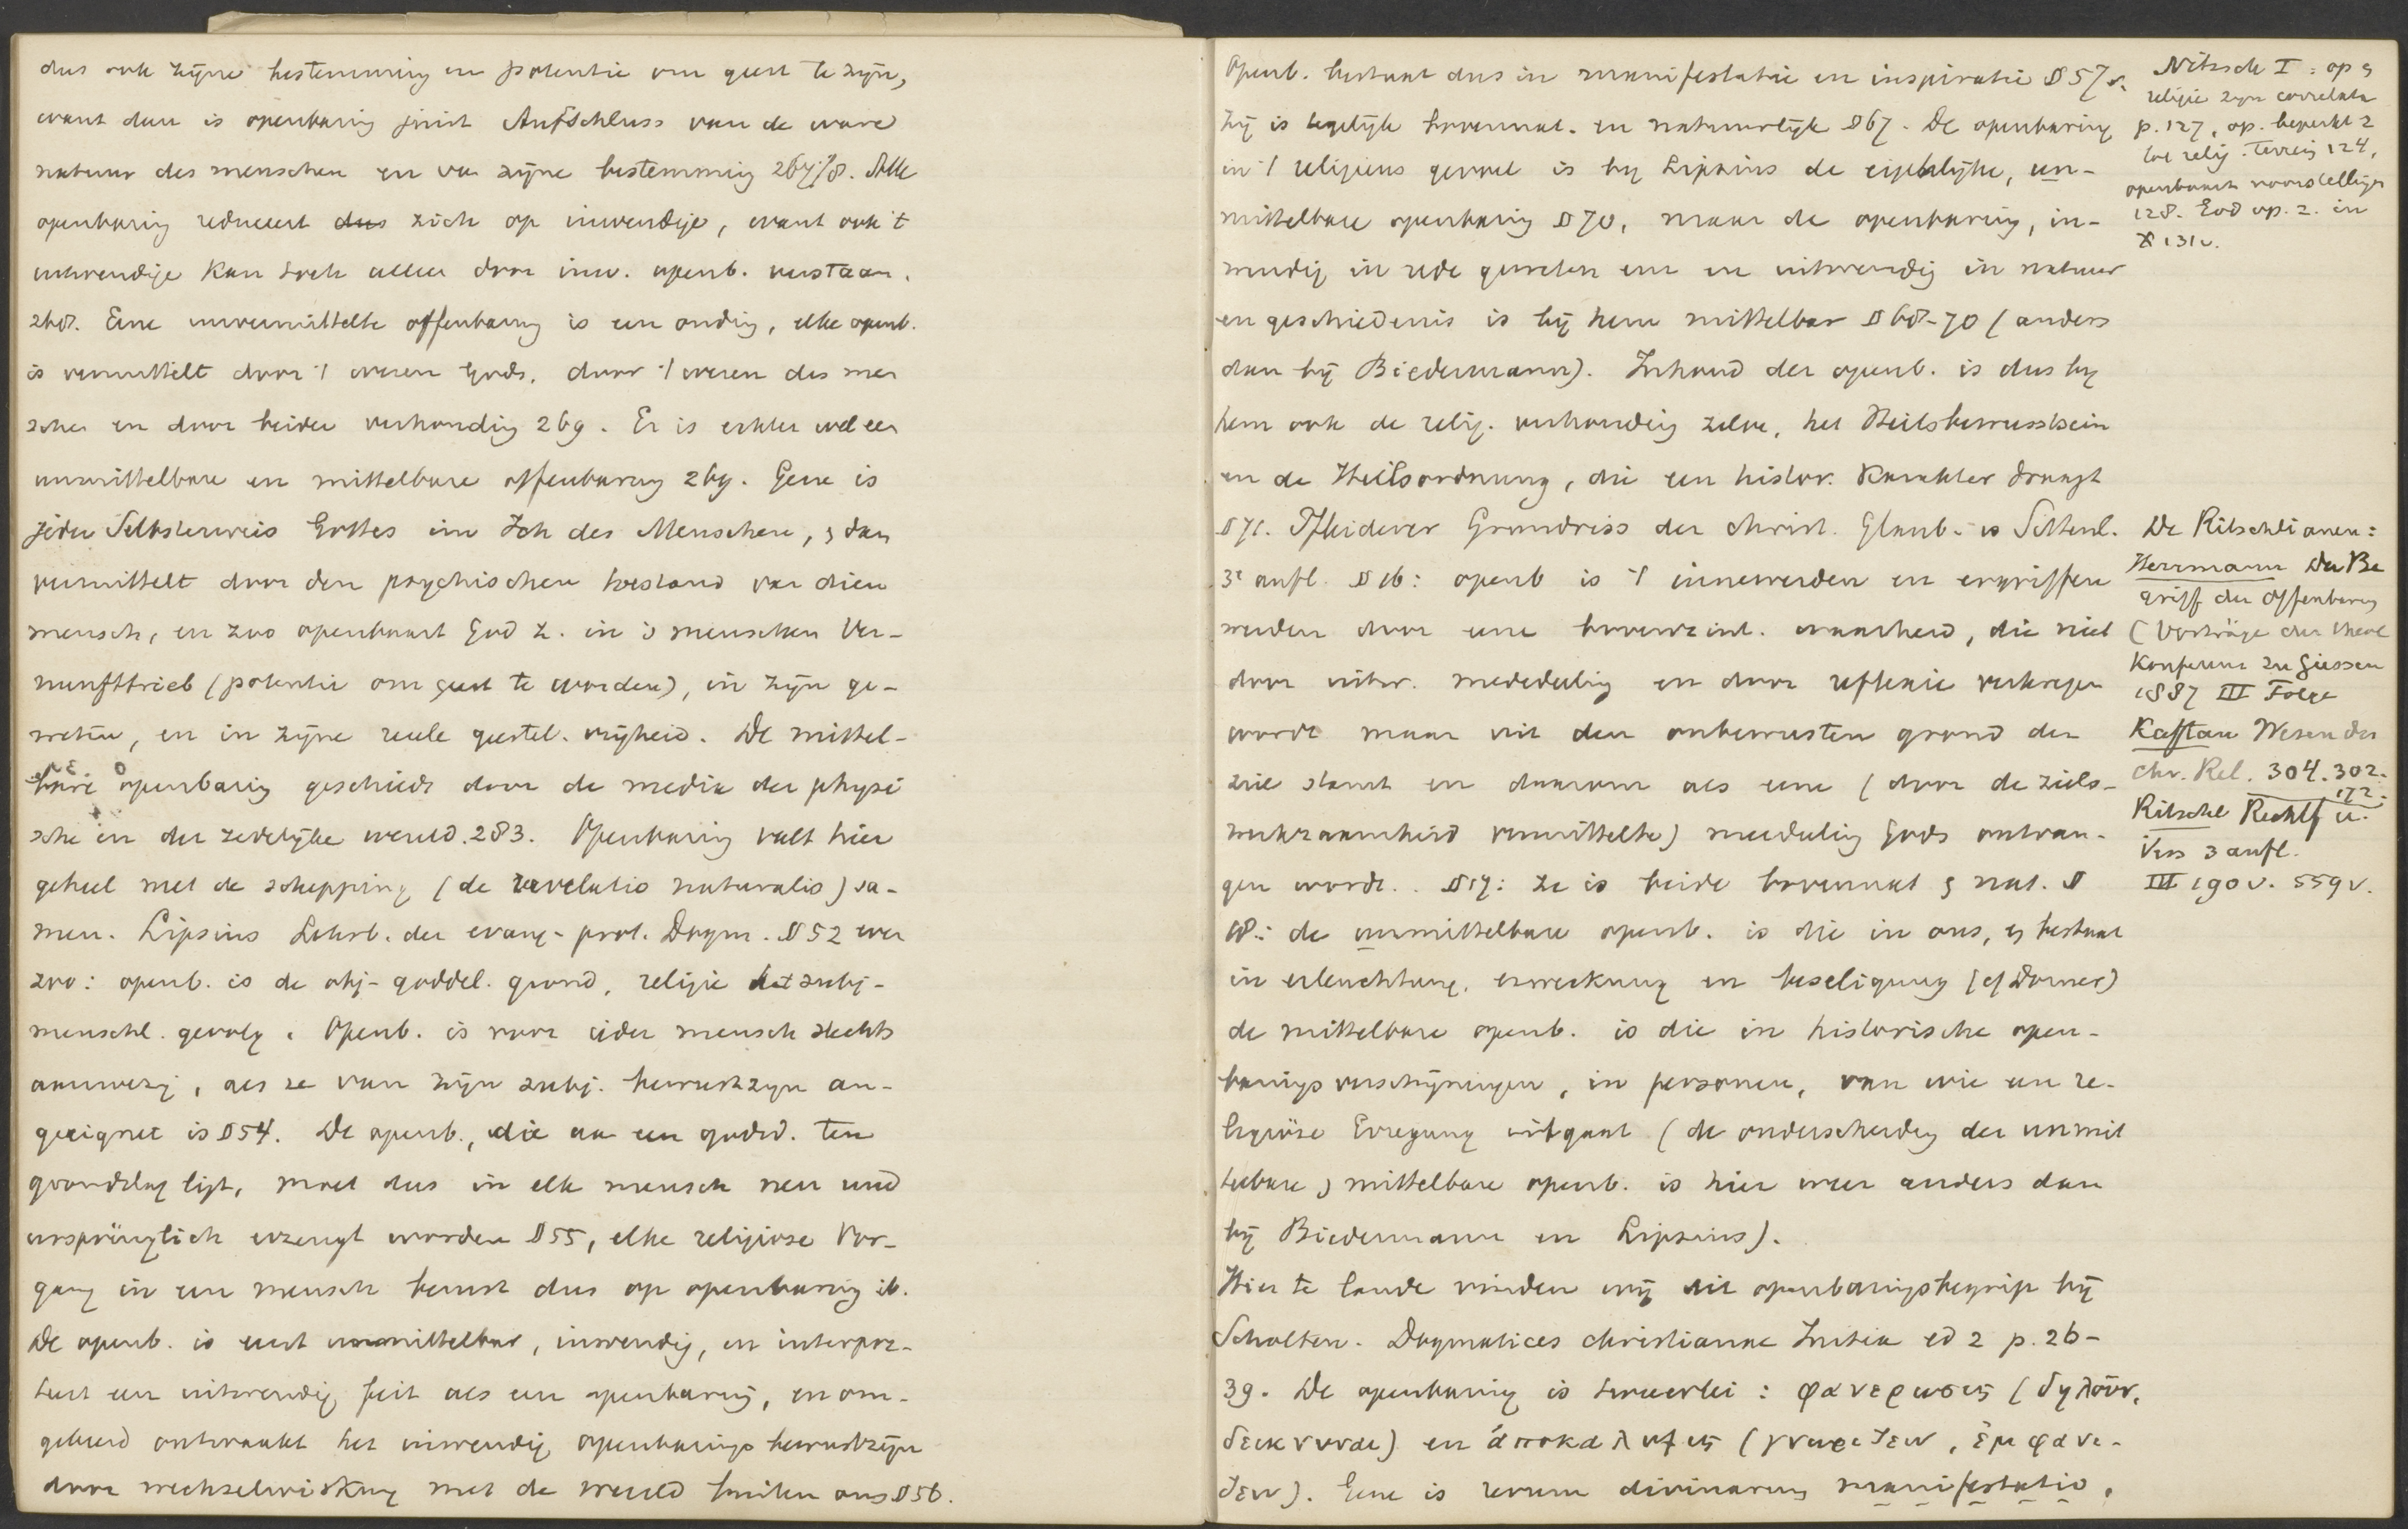 dus ook zijne bestemming en potentie om geest te zijn,
want dan is openbaring juist Aufschluss van de ware
natuur des menschen en van zijne bestemming 267/8. Alle
openbaring reduceert dus zich op inwendige, want ook 't
uitwendige kan toch alleen door inw. openb. verstaan.
268. Eine unvermittelte offenbarung is een onding, elke openb.
is vermittelt door 't wezen Gods, door 't wezen des men
schen en door beider verhouding 269. Er is echter wel een
unmittelbare en mittelbare offenbarung 269. Gene is
jeder Selbsterweis Gottes im Ich des Menschen, is dan
vermittelt door den psychischen toestand van dien
mensch, en zoo openbaart God z. in 's menschen Ver-
nunfttrieb (potentie om geest te worden), in zijn ge-
weten, en in zijne reele geestel. vrijheid. De mittel-
bare openbaring geschiedt door de media der physi
sche en der zedelijke wereld. 283. Openbaring valt hier
geheel met de schepping (de revelatio naturalis) sa-
men. Lipsius Lehrb. der evang-prot. Dogm. § 52 even
zoo: openb. is de obj-goddel. grond, religie het subj-
menschl. gevolg. Openb. is voor ieder mensch slechts
aanwezig, als ze van zijn subj. bewustzijn an-
geeignet is § 54. De openb., die aan een godsd. ten
grondslag ligt, moet dus in elk mensch neu und
ursprünglich erzeugt worden § 55, elke religiose Vor-
gang in een mensch berust dus op openbaring ib.
De openb. is eerst unmittelbar, inwendig, en interpre-
teert een uitwendig feit als een openbaring, en om-
gekeerd ontwaakt het inwendig openbarings bewustzijn
door wechselwirkung met de wereld buiten ons § 56.
Openb. bestaat dus in manifestatie en inspiratie § 57 v.
Zij is tegelijk bovennat. en natuurlijk § 67. De openbaring
in 't religieus gevoel is bij Lipsius de eigenlijke, un-
mittelbare openbaring § 70, maar de openbaring, in-
wendig in rede geweten enz en uitwendig in natuur
en geschiedenis is bij hem mittelbar § 68-70 (anders
dan bij Biedermann). Inhoud der openb. is dus bij
hem ook de relig. verhouding zelve, het Heilsbewusstsein
en de Heilsordnung, die een histor. karakter draagt
§ 71. Pfleiderer Grundriss der christ. Glaub. u Sittenl.
3e aufl. § 16: openb is 't innewerden en ergriffen
werden door eene bovenzinl. waarheid, die niet
door uitw. mededeeling en door reflexie verkregen
wordt maar uit den onbewusten grond der
ziel stamt en daarom als eene (door de ziels-
werkzaamheid vermittelte) mededeeling Gods ontvan-
gen wordt. § 17: ze is beide bovennat & nat. §
18: de unmittelbare openb. is die in ons, en bestaat
in erleuchtung, erweckung en beseligung (cf Dorner)
de mittelbare openb. is die in historische open-
barings verschijningen, in personen, van wie een re-
ligiöse Erregung uitgaat (de onderscheiding der unmit
telbare, mittelbare openb. is hier weer anders dan
bij Biedermann en Lipsius).
Hier te lande vinden wij dit openbaringsbegrip bij
Scholten. Dogmatices christianae Initia ed 2 p. 26-
39. De openbaring is tweeërlei: φανερωσις (δηλοῦν,
δεικνυναι) en ἀποκαλυψις (γνωριζειν, ἐμφανι-
ζειν). Gene is rerum divinarum manifestatio,
Nitzsch I: op &
religie zijn correlata
p. 127, op. beperkt z
tot relig. terrein 124,
openbaart voorstellingen
128. God op. z. in
X 131 v.
De Ritschlianen:
Herrmann Der Be
griff der Offenbarung
(Vorträge der theol
Konferenz zu Giessen
1887 III Folge
Kaftan Wesen der
chr. Rel. 304. 302.
172.
Ritschl Rechtf u.
Vers 3 aufl.
III 190 v. 559 v.